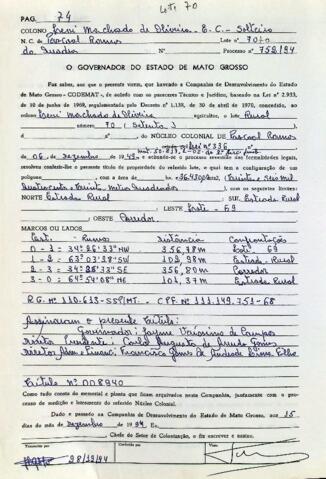 Lote 70
PAG. 74
COLONO Irení Machado de Oliveira - E. C. - Solteiro
N. C. de Pascoal Ramos Lote n.º 70
Processo n.º 752/94
O GOVERNADOR DO ESTADO DE MATO GROSSO
Faz saber, aos que o presente virem, que havendo a Companhia de Desenvolvimento do Estado
de Mato Grosso - CODEMAT -, de acordo com os pareceres Técnico e Jurídico, baseado na Lei N.º 2.933,
10 de junho de 1968, regulamentada pelo Decreto n.º 1.138, de 30 de abril de 1970, concedido, ao
colono Irení Machado de Oliveira agricultor, o lote Rural
número 70 (Setenta)
do NÚCLEO COLONIAL de Pascoal Ramos
de 06 de Dezembro de 1949 e achando-se o processo revestido das formalidades legais,
resolveu conferir-lhe o presente título de propriedade do referido lote, o qual tem a configuração de um
polígono
metros Quadrados) com os seguintes limites:
NORTE Estrada Rural SUL Estrada Rural
LESTE Lote - 69
OESTE Corredor
MARCOS OU LADOS
Est. Rumos Distância Confrontação
0 - 1 = 34º26'33"NW 356,78m Lote 69
1 - 2 = 63º03'28"SW 102,98m Estrada Rural
2 - 3 = 34º28'33"SE 356,80m Corredor
3 - 0 = 64º54'08"NE 101,37m Estrada Rural
RG. Nº 110.613-SSP/MT. - CPF. Nº 111.149.751-68
Assinaram o presente Título:
Governador: Jayme Veríssimo de Campos
Diretor Presidente: Carlos Augusto de Arruda Gomes
Diretor Adm. e Financ. Francisco Gomes de Andrade Lima Filho
Título Nº 008940
Como tudo consta do memorial e planta que ficam arquivados nesta Companhia, juntamente com o pro-
cesso de medição e loteamento do referido Núcleo Colonial.
Dado e passado na Companhia de Desenvolvimento do Estado de Mato Grosso, aos 15
dias do mês Dezembro de 1994. Eu,
Chefe do Setor de Colonização, o fiz escrever e assino.
Transcrito por
Visto
28/12/94